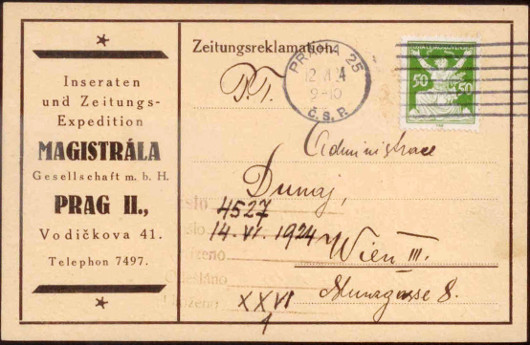 Inseraten
und Zeitungs-
Expedition
MAGISTRÁLA
Gesellschaft m. b. H.
PRAG II.,
Vodičkova 41.
Telephon 7497.
Zeitungsreklamation.
PRAHA 25
9-10
Č.S.P.
50 50
P.T.
Administrace
Dunaj,
4527
14. VI. 1924
Wien III.
8.
XXVI
1